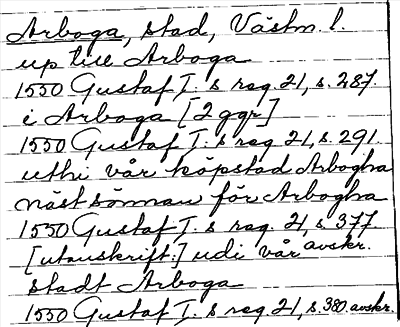 Arboga, stad, Västm. l.
up till Arboga
1550 Gustaf I:s reg. 21, s. 287.
i Arboga [2 ggr]
1550 Gustaf I:s reg. 21, s. 291
uthi vår köpstad Arbogha
näst sönnan för Arbogha
1550 Gustaf I:s reg. 21, s. 377
[utanskrift:] udi vår avskr.
stadt Arboga
1550 Gustaf I:s reg. 21, s. 380. avskr.